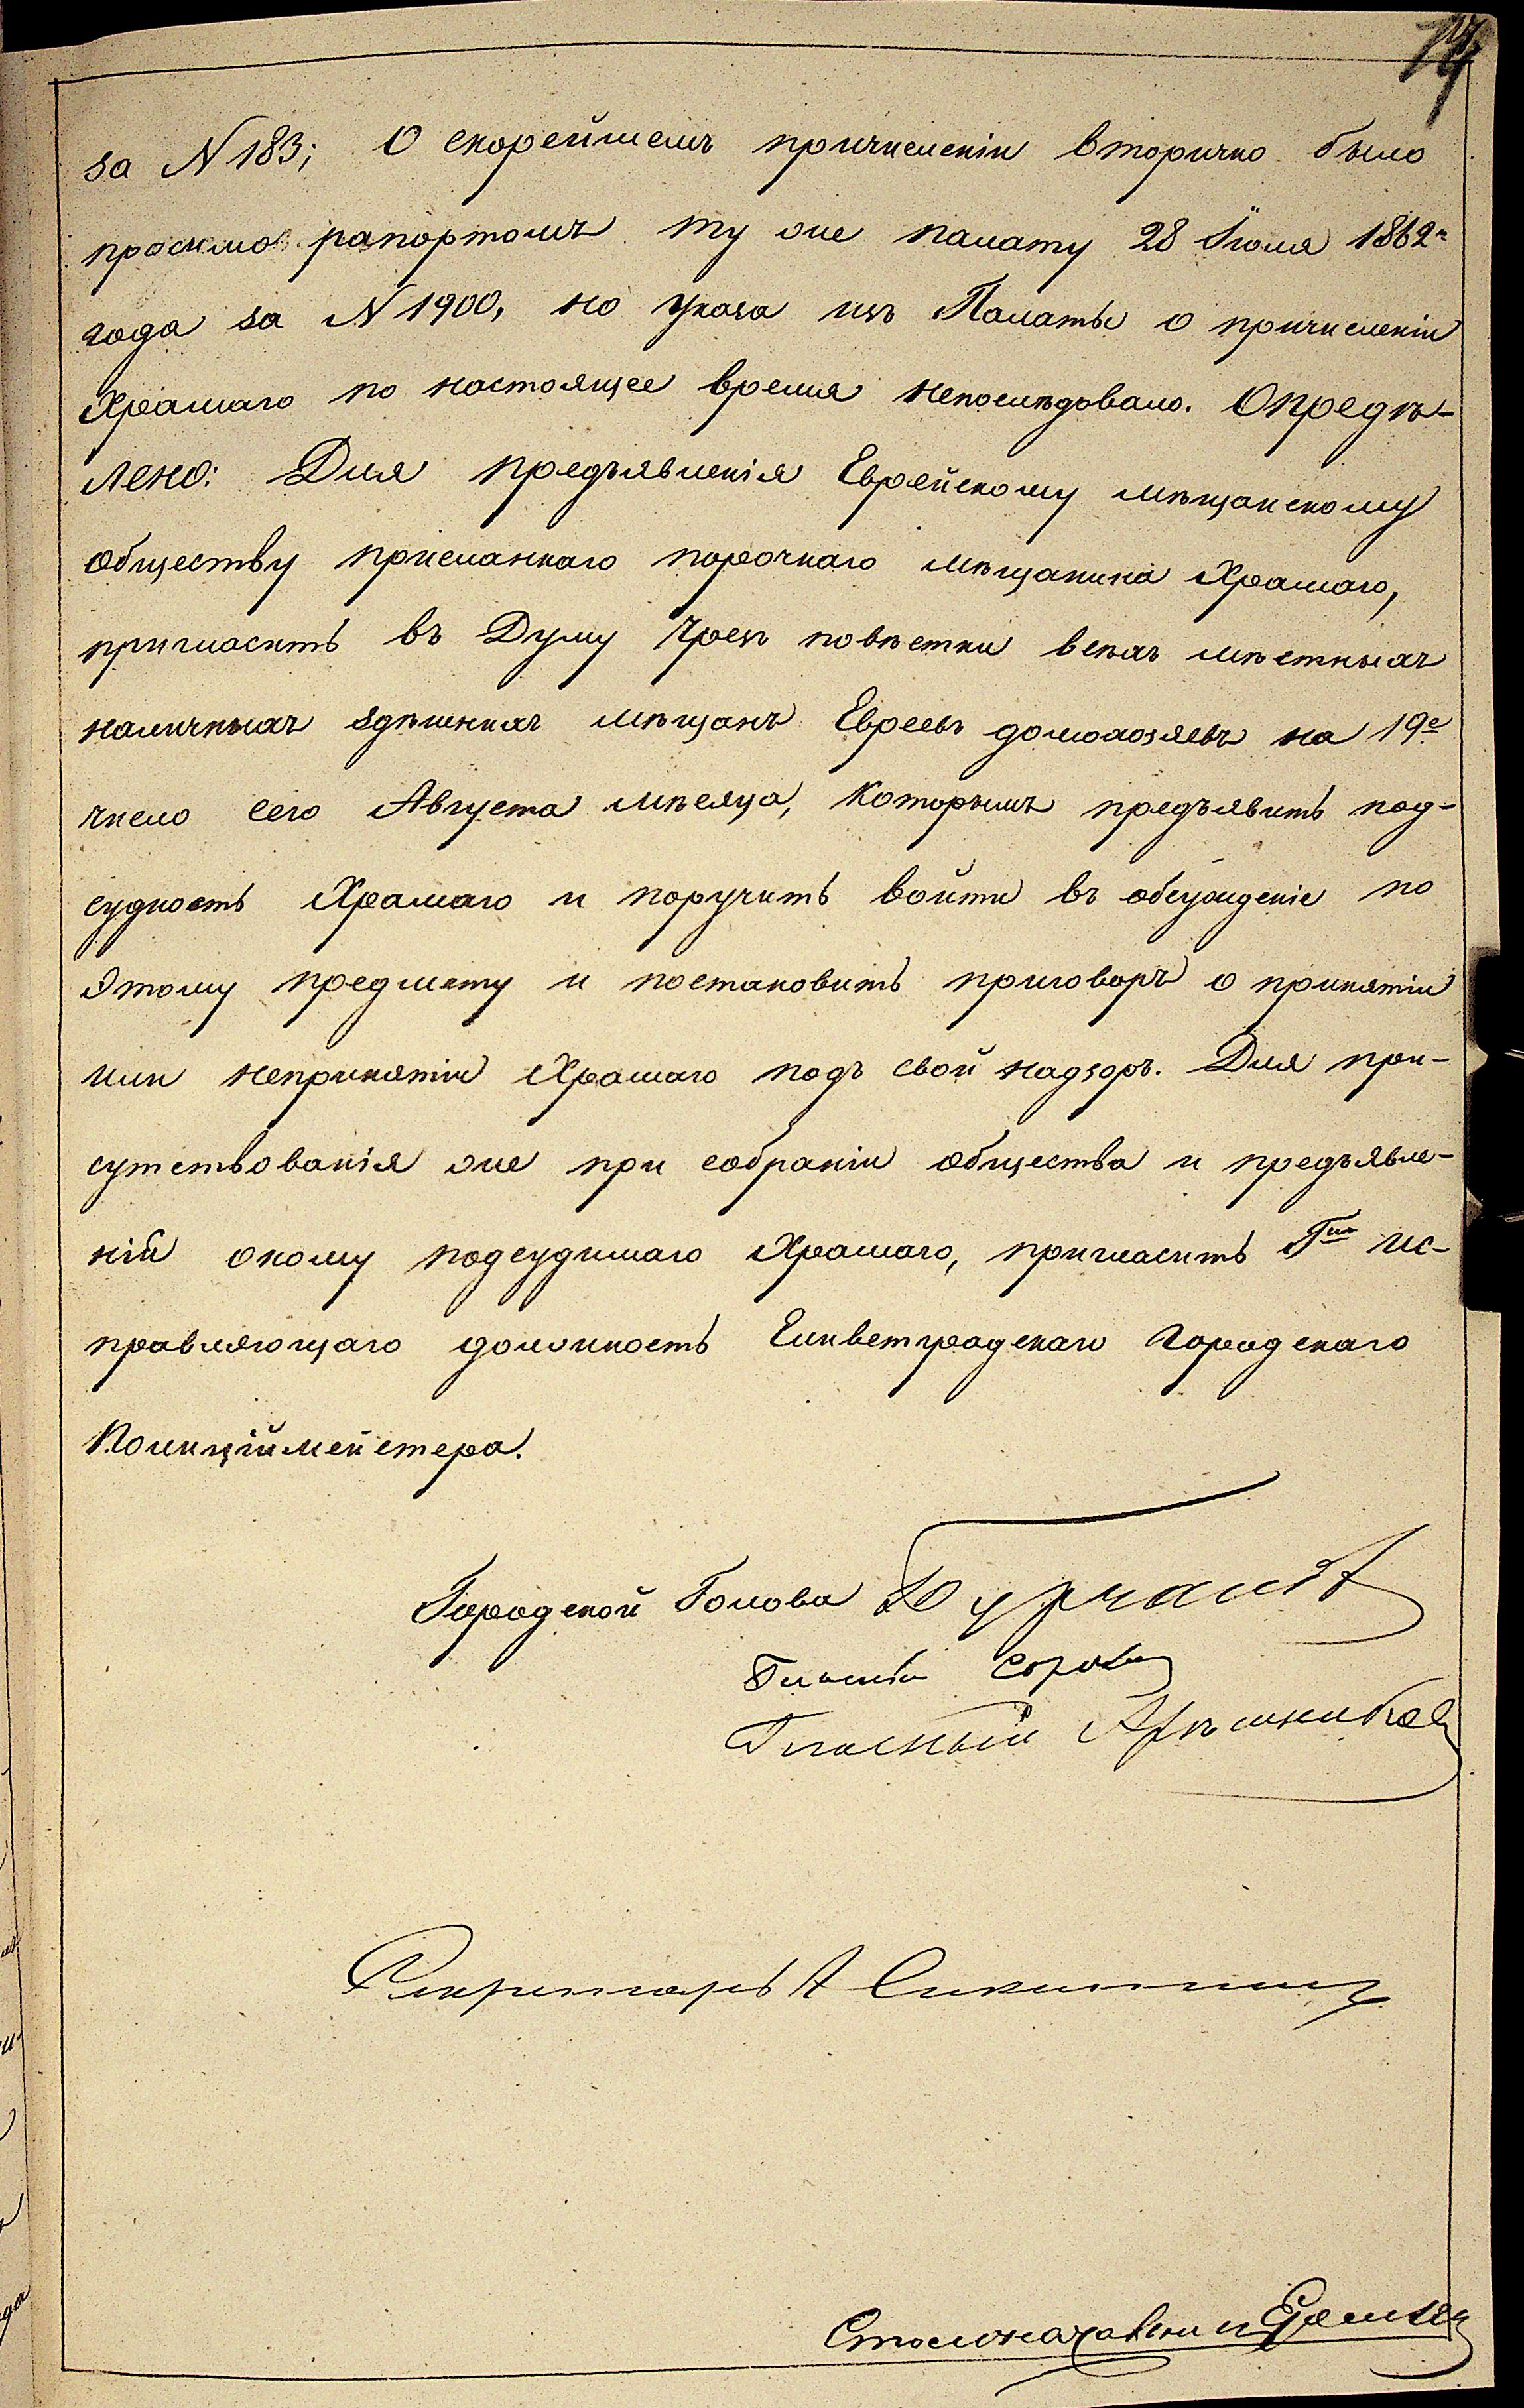 за N 183; О скорейшемъ причисленіи вторично было
просимо рапортомъ ту же палату 28 Іюля 1862 г.
года за N 1900, но указа изъ Палаты о причисленіи
Храмаго по настоящее время непослѣдовало. Опредѣ-
лено: Для предъявленія Еврейскому мѣщанскому
обществу присланнаго порочнаго мѣщанина Храмаго,
пригласить въ Думу чрезъ повѣстки всѣхъ мѣстныхъ
наличныхъ здѣшнихъ мѣщанъ Евреевъ домохозяевъ на 19е
число сего Августа мѣсяца, которымъ предъявить под-
судность Храмаго и поручить войти въ обсужденіе по
этому предмету и постановить приговоръ о принятіи
или непринятіи Храмаго подъ свой надзоръ. Для при-
сутствованія же при собраніи общества и предъявле-
ніи оному подсудимаго Храмаго, пригласить Гна Ис-
правляющаго должность Елисветградскаго Городскаго
Полиціймейстера.
Городской Голова
Гласный
Гласный
Секретарь А
Столоначальникъ